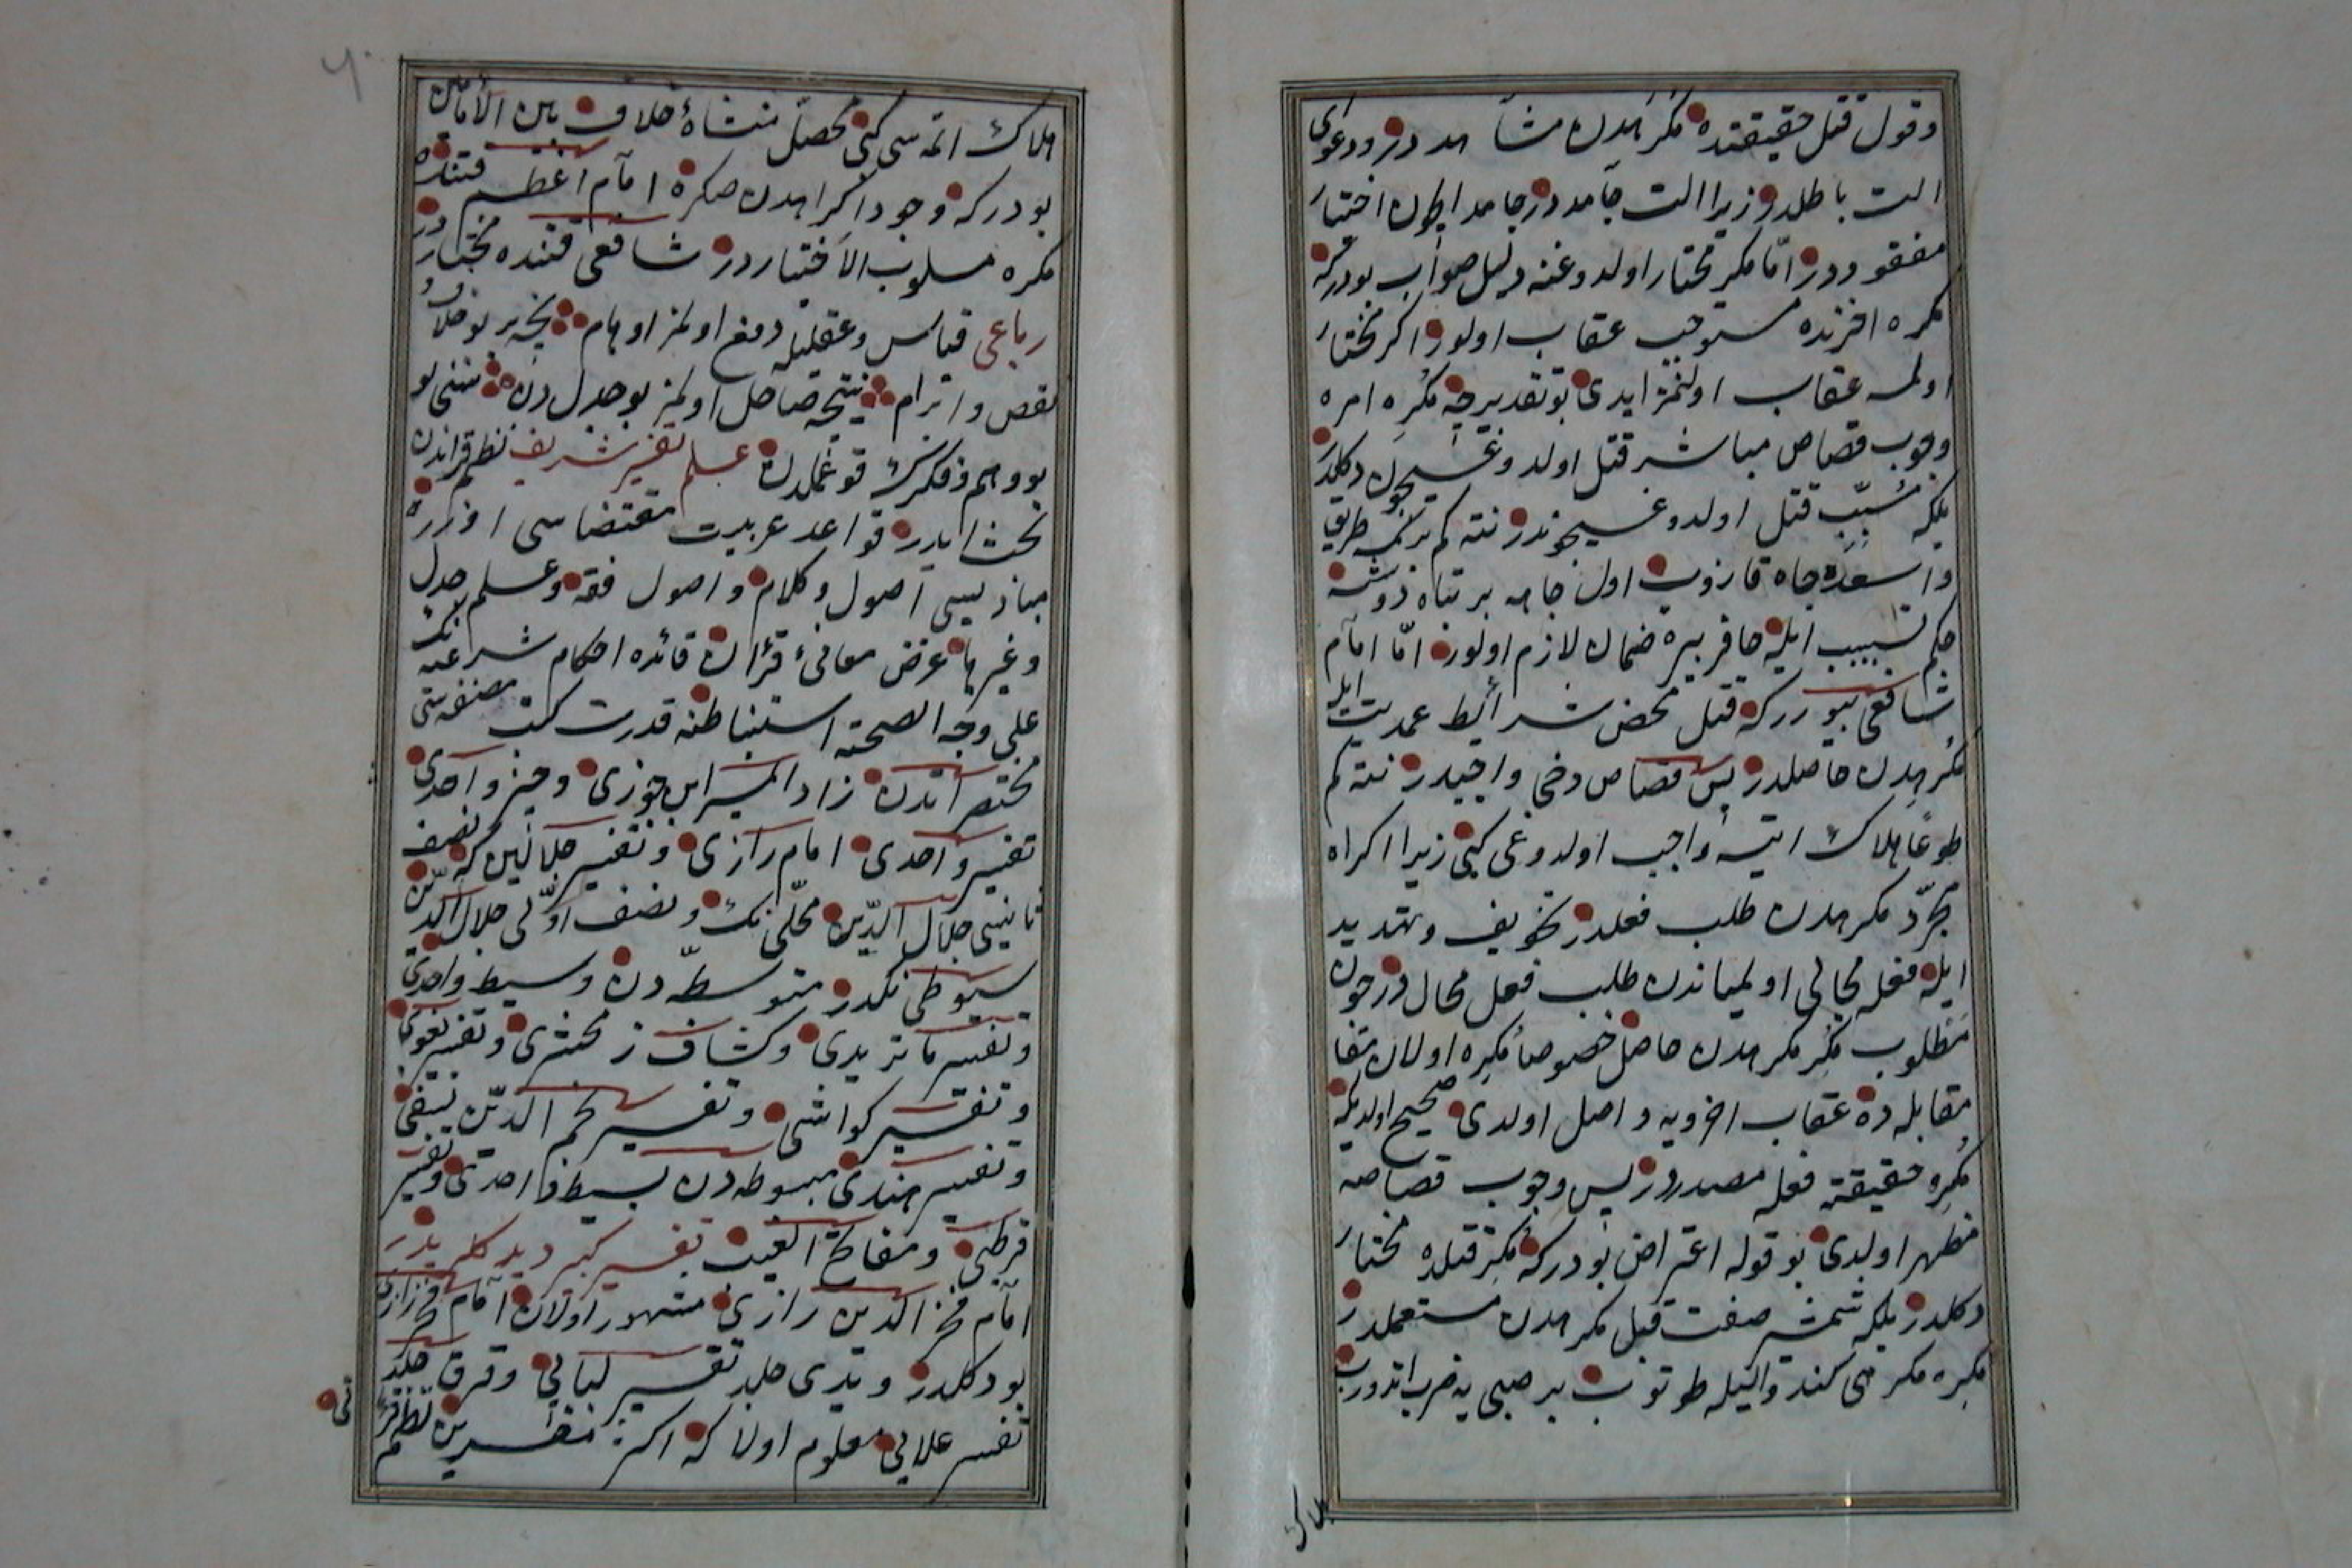 وقول قتل حقیقتده مکرهدن مشاهد در ودعوای
الت باطلدر زیرا الت جامد در جامد ایچون اختیار
مفقوددر امّا مکره مختار اولدوغنه دلیل صواب بودرکه
مکره اخرتده مستوجب عقاب اولور اکر مختار
اولمسه عقاب اولنمز ایدی بو تقدیرجه مکره امره
وجوب قصاص مباشر قتل اولدوغیچون دکلدر
بلکه مسبّب قتل اولدوغیچوندر نته کم برکمسه طریق
واسعده چاه قازوب اول چاهه بر تباه دوشسه
حکم تسبیب ایله حافر بیره ضمان لازم اولور امّا امام
شافعی بیوررکه قتل محض شرائط عمدیت ایله
مکرهدن حاصلدر پس قصاص دخی واجبدر نته کم
طوعا هلاک ایتسه واجب اولدوغی کبی زیرا اکراه
مجرّد مکرهدن طلب فعلدر تخویف وتهدید
ایله فعله مجالی اولمیاندن طلب فعل محال در چون
مطلوب مکره مکرهدن حاصل خصوصا مکره اولان
مقابله ده عقاب اخرویه واصل اولدی صحیح اولدیکه
مکره حقیقته فعله مصدردر پس وجوب قصاصه
مظهر اولدی بو قوله اعتراض بودرکه مکره قتلده مختار
دکلدر بلکه شمشیر صفت قبل مکرهدن مستعملدر
مکره مکرهی کند والیله طوتوب بر صبی یه ضرب ایدوب
هلاک
هلاک اتمه سی کبی محصّل منشأ خلاف بین الأمامین
بودرکه وجود اکراهدن صکره امام اعظم قتنده
مکره مسلوب الأختیاردر شافعی قتنده مختاردر
رباعی قیاس وعقلیله دفع اولمز اوهام نیجه بر بو خلاف و
نقض وابرام نتیجه حاصل اولمز بو جدل دن سنی بو
بو وهم وفکرک قوغملدن علم تفسیر شریف نظم قراندن
بحث ایدر قواعد عربیت مقتضاسی اوزره
مبادیسی اصول وکلام واصول فقه وعلم جدل
وغیرها غرض معانیء قرآن فائده احکام شرعیه نک
علی وجه الصحته استنباطنه قدرت کتب مصنفه سی
مختصراتدن زاد المسیر ابن جوزی وجیز واحدی
تفسیر واحدی امام رازی وتفسیر جلالین که نصف
ثانیسی جلال الدّین محلّی نک ونصف اوّلی جلال الدّین
سیوطی نکدر متوسطه دن وسیط واحدی
وتفسیر ماتریدی وکشاف زمخشری وتفسیر بغوی
وتفسیر کواشی وتفسیر نجم الدّین نسفی
وتفسیر هندی مبسوطه دن بسیط واحدی وتفسیر
قرطبی ومفاتح الغیب تفسیر کبیر دیدکلریدر
امام فخر الدین رازی مشهور اولان امام فخر رازی
بو دکلدر ویدی جلد تفسیر لبابی وقرق جلد
تفسیر علایی معلوم اولا که اکثر مفسرین نظم